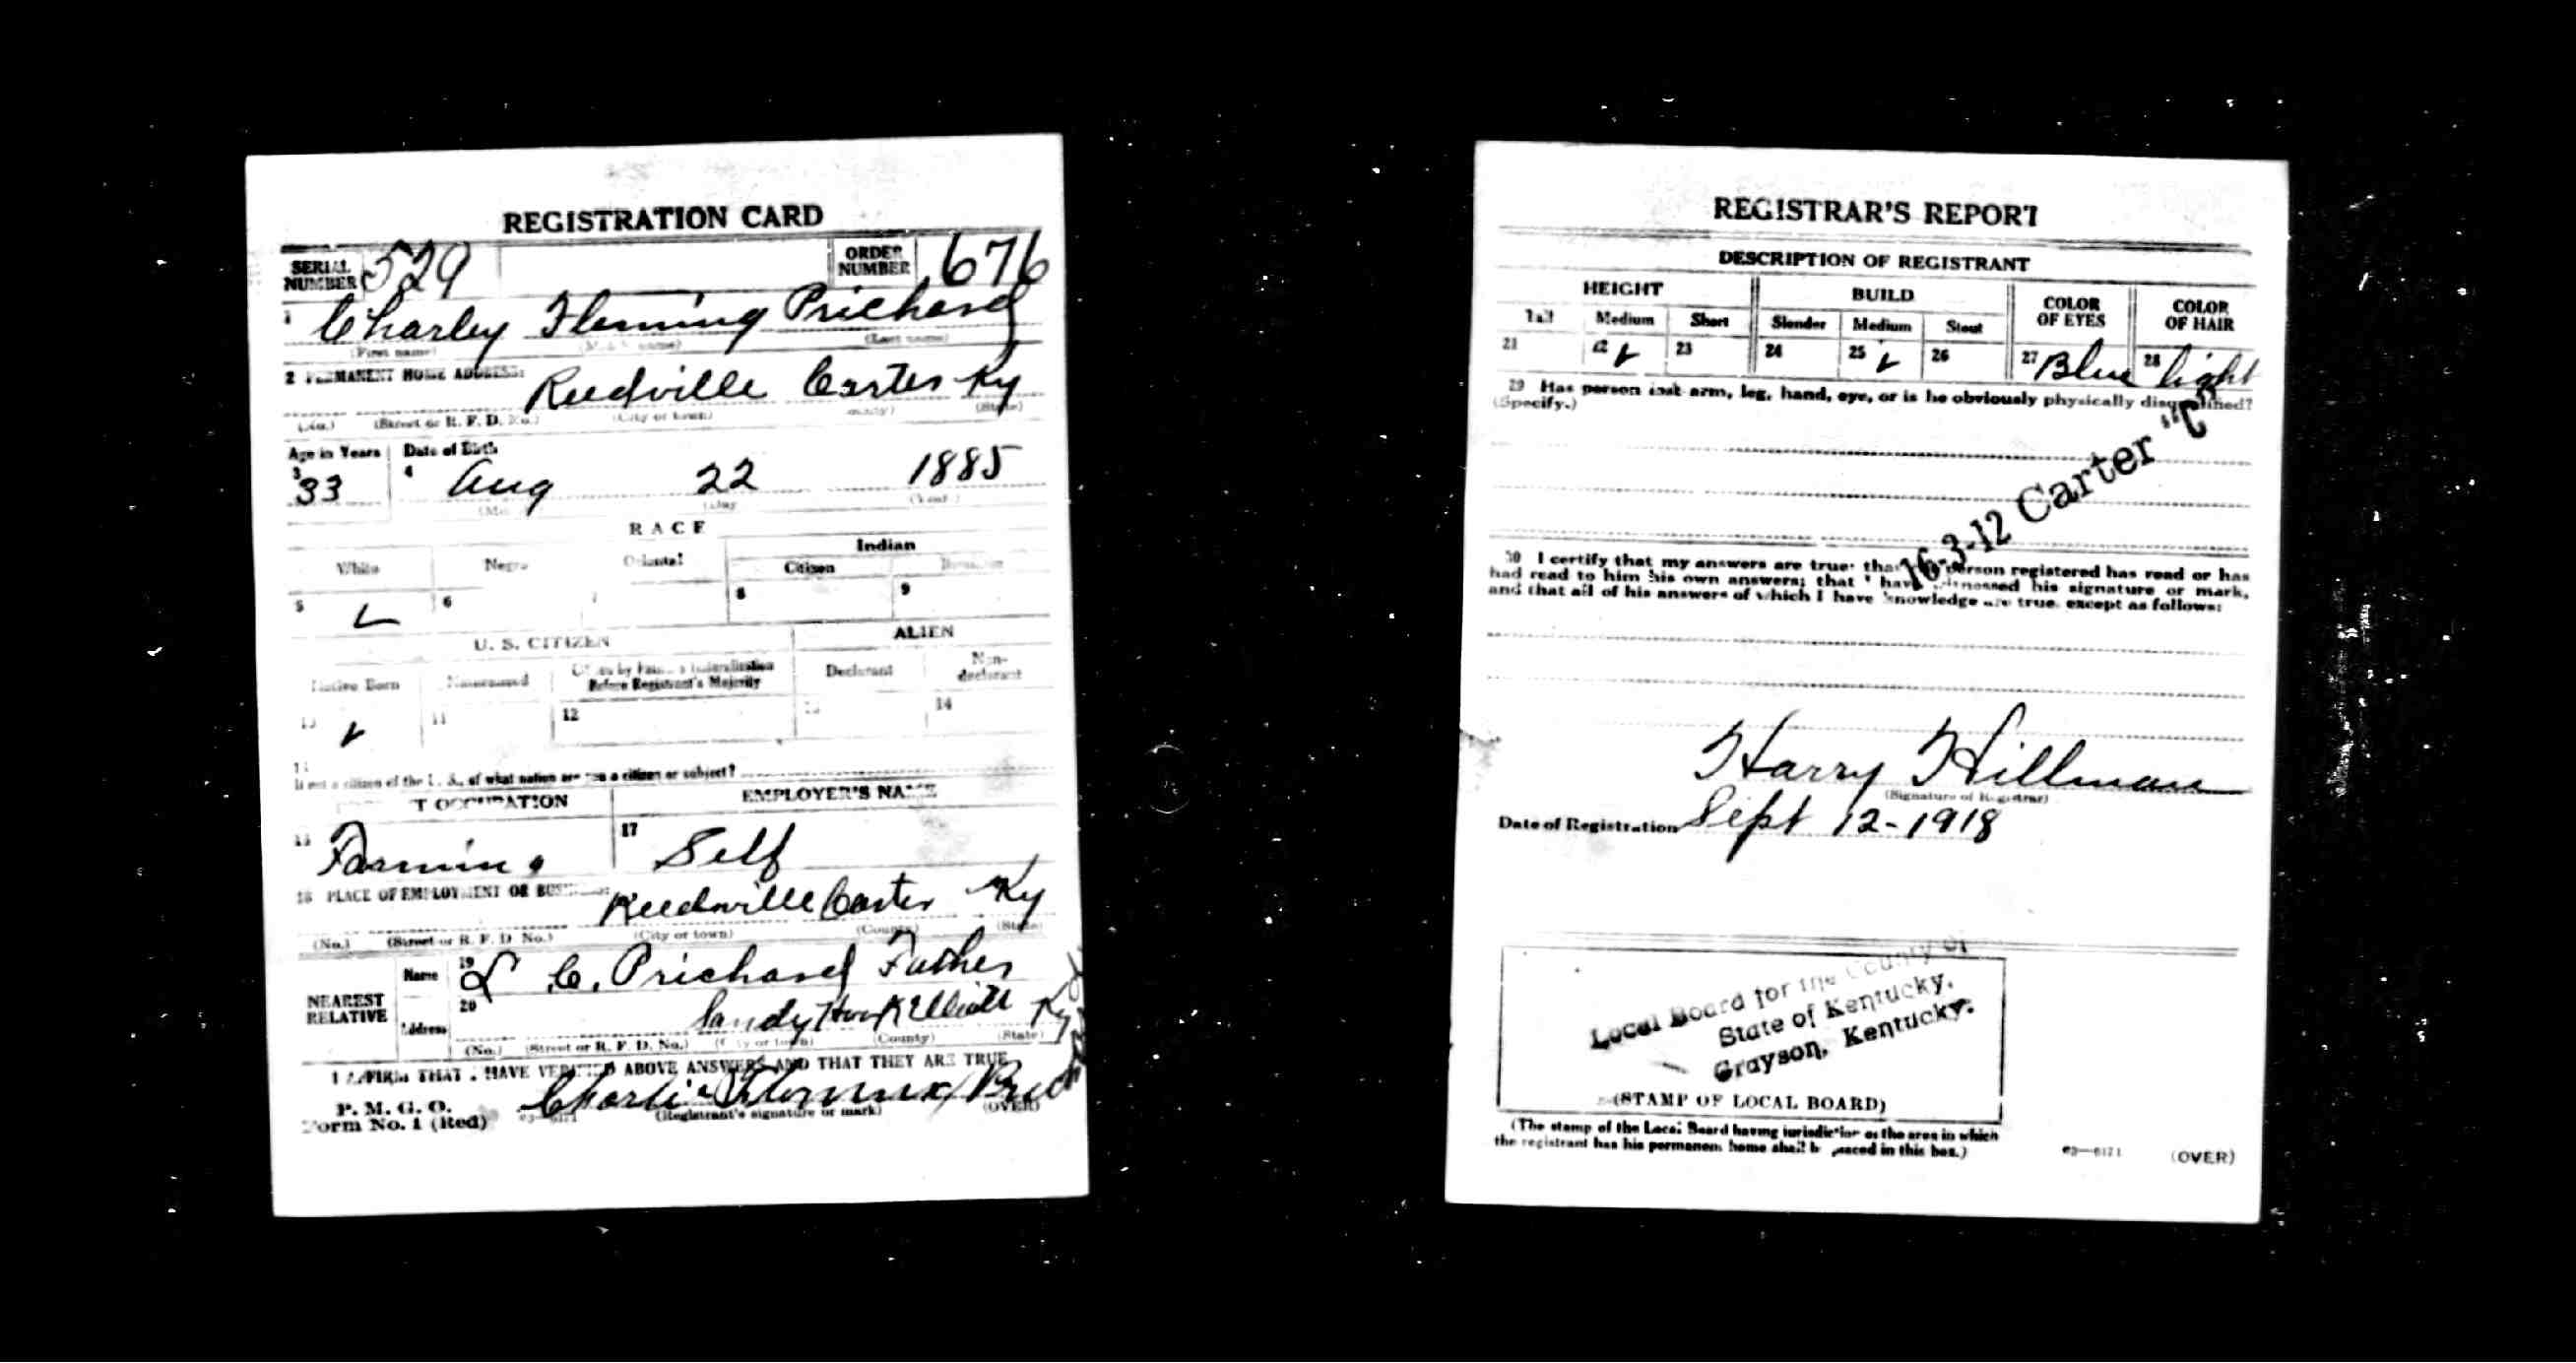 REGISTRATION CARD
SERIAL NUMBER 529 ORDER NUMBER 676
1 Charley Fleming Prichard
(First name) (Middle name) (Last name)
2 PERMANENT HOME ADDRESS: Reedville Carter Ky
(No.) (Street or R. F. D. No.) (City or town) (County) (State)
Age in Years Date of Birth
3 33 4 Aug 22 1885
(Day) (Year)
RACE
White Negro Oriental Indian
Citizen
5 6 7 8 9
U. S. CITIZEN ALIEN
Native Born Naturalized Citizen by Father's Naturalization Before Registrant's Majority Declarant Non-declarant
10 11 12 13 14
If not a citizen of the U. S., of what nation are you a citizen or subject?
PRESENT OCCUPATION EMPLOYER'S NAME
Farming 17 Self
18 PLACE OF EMPLOYMENT OR BUSINESS: Reedville Carter Ky
(No.) (Street or R. F. D. No.) (City or town) (County) (State)
NEAREST RELATIVE Name 19 C. Prichard Father
Address 20 Sandy Hook Elliott Ky
(No.) (Street or R. F. D. No.) (City or town) (County) (State)
I AFFIRM THAT I HAVE VERIFIED ABOVE ANSWERS AND THAT THEY ARE TRUE
P. M. G. O.
Form No. 1 (Red) Charlie
(Registrant's signature or mark) (OVER)
REGISTRAR'S REPORT
DESCRIPTION OF REGISTRANT
HEIGHT BUILD COLOR OF EYES COLOR OF HAIR
Tall Medium Short Slender Medium Stout
21 22 23 24 25 26 27 Blue 28 light
29 Has person lost arm, leg, hand, eye, or is he obviously physically disqualified?
(Specify.)
16-3-12 Carter "C"
30 I certify that my answers are true; that the person registered has read or has
had read to him his own answers; that I have witnessed his signature or mark,
and that all of his answers of which I have knowledge are true, except as follows:
Harry Hillman
(Signature of Registrar)
Date of Registration Sept 12-1918
Local Board for the County of
State of Kentucky.
Grayson, Kentucky.
(STAMP OF LOCAL BOARD)
(The stamp of the Local Board having jurisdiction of the area in which
the registrant has his permanent home shall be placed in this box.)
03—6171 (OVER)